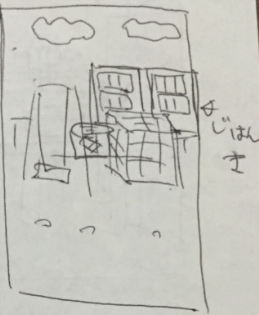 じはん
き